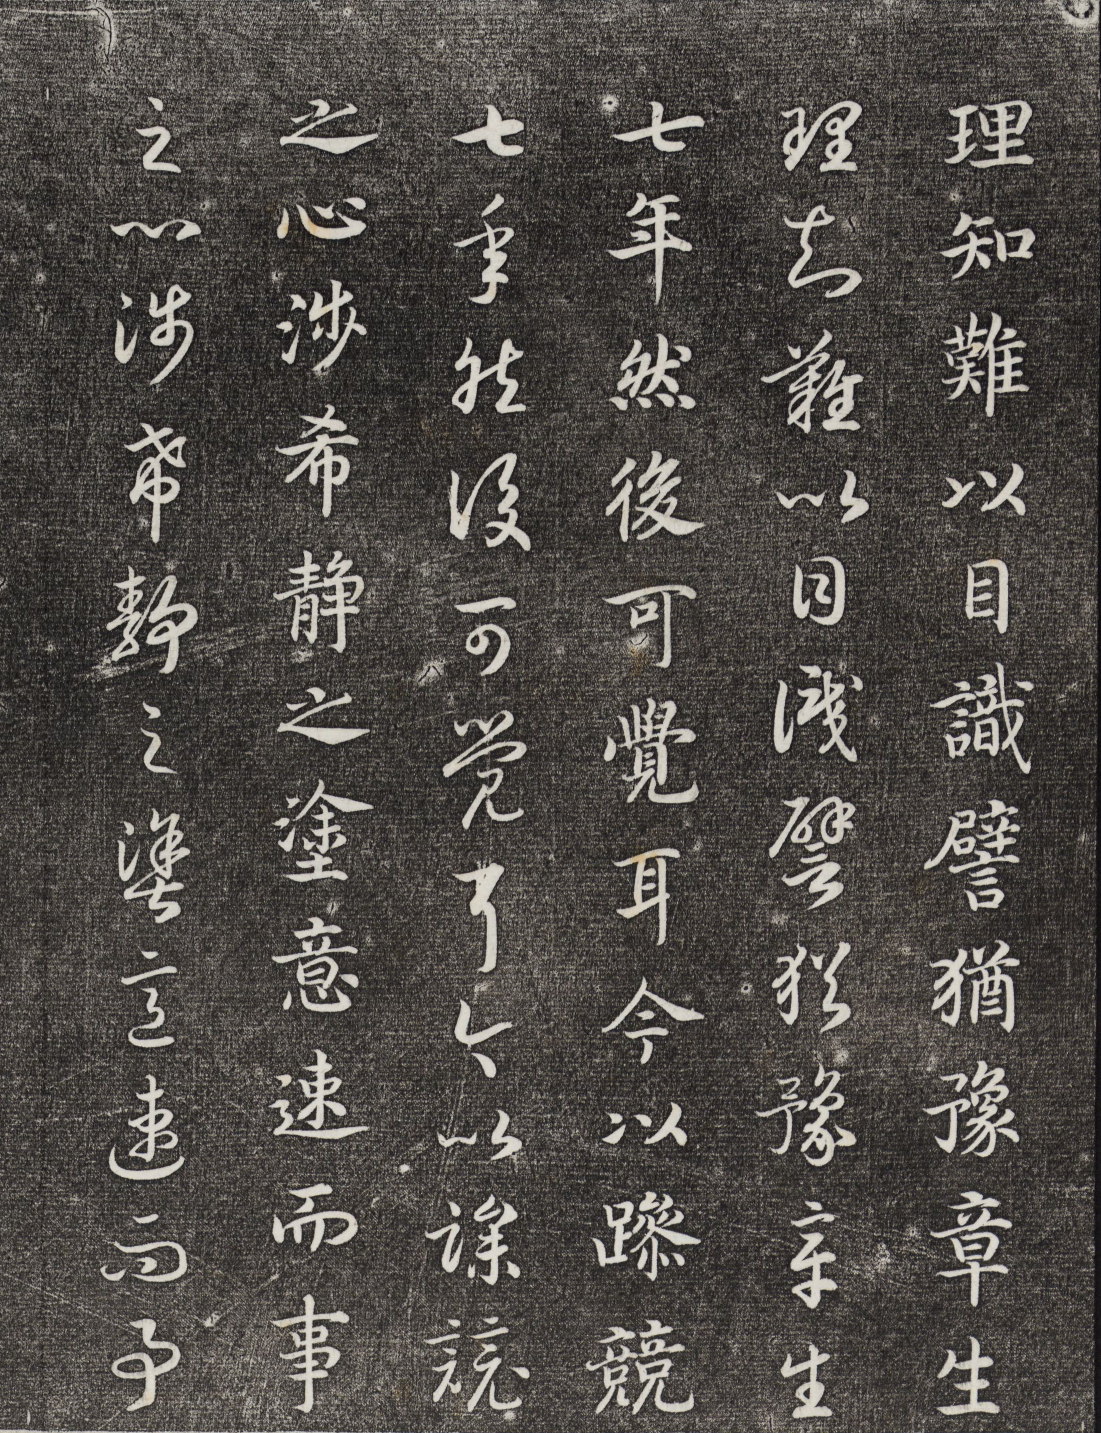 理知難以目識譬猶豫章生
理知難以目識譬猶豫章生
七年然後可覺耳今以躁競
七年然後可覺耳今以躁競
之心涉希静之塗意速而事
之心涉希静之塗意速而事